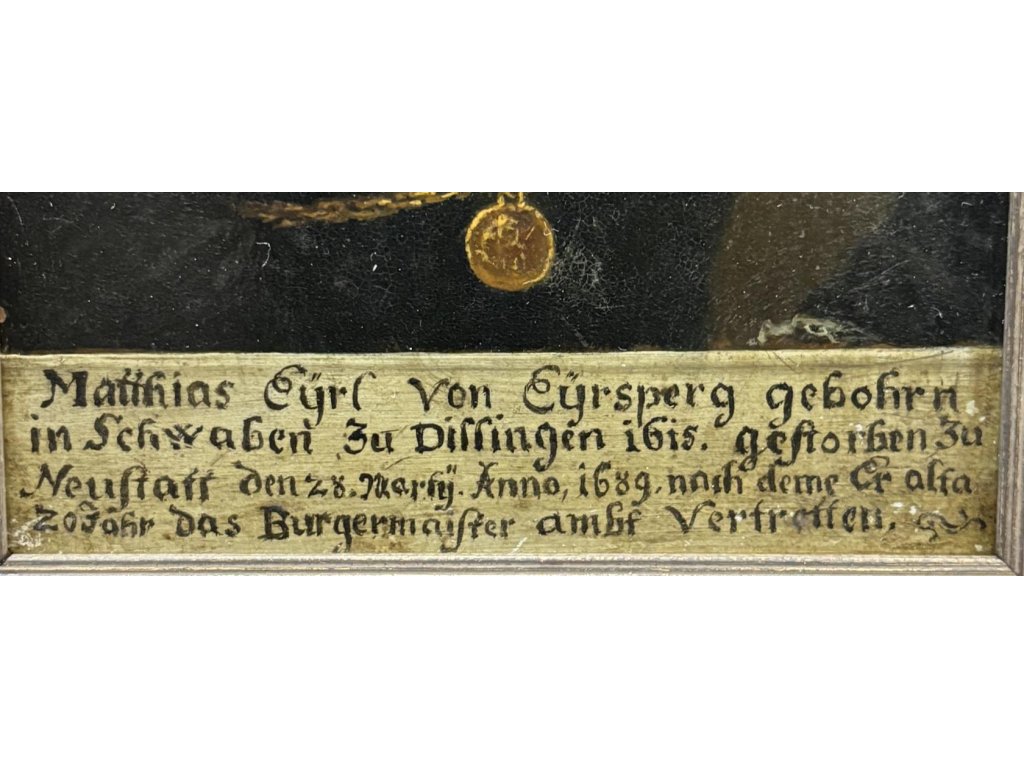 Matthias Eÿrl von Eÿrsperg gebohrn
in Schwaben Zu Dillingen 1615. gestorben Zu
Neustatt den 28. Martÿ. Anno, 1689. nach deme Er alta
20 Jahr das Burgermaister ambt Vertretten.